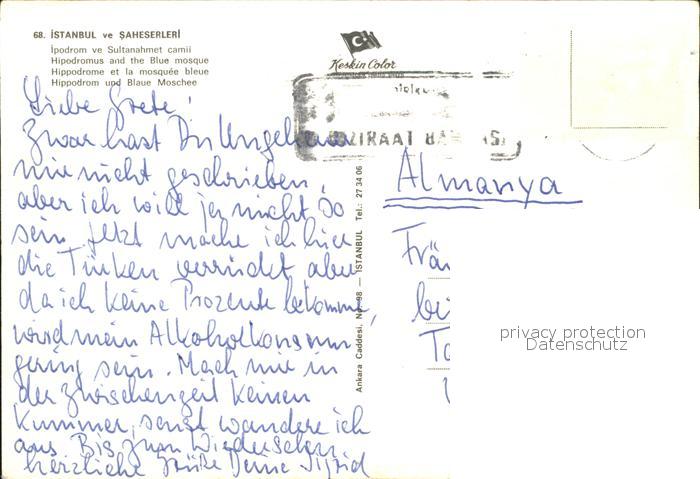 68. İSTANBUL ve ŞAHESERLERİ
İpodrom ve Sultanahmet camii
Hipodromus and the Blue mosque
Hippodrome et la mosquée bleue
Hippodrom und Blaue Moschee
Keskin Color
ZİRAAT BA
Liebe Grete!
Zwar hast Du Ungeheuer
mir nicht geschrieben,
aber ich will ja nicht so
sein. Jetzt mache ich hier
die Türken verrückt, aber
da ich keine Prozente bekomme,
wird mein Alkoholkonsum
gering sein. Mach mir in
der Zwischenzeit keinen
Kummer, sonst wandere ich
aus. Bis zum Wiedersehen
herzliche Grüße Deine Sigrid
Ankara Caddesi, No: 98 — İSTANBUL Tel.: 27 34 06
Almanya
Frä
be
privacy protection
Datenschutz